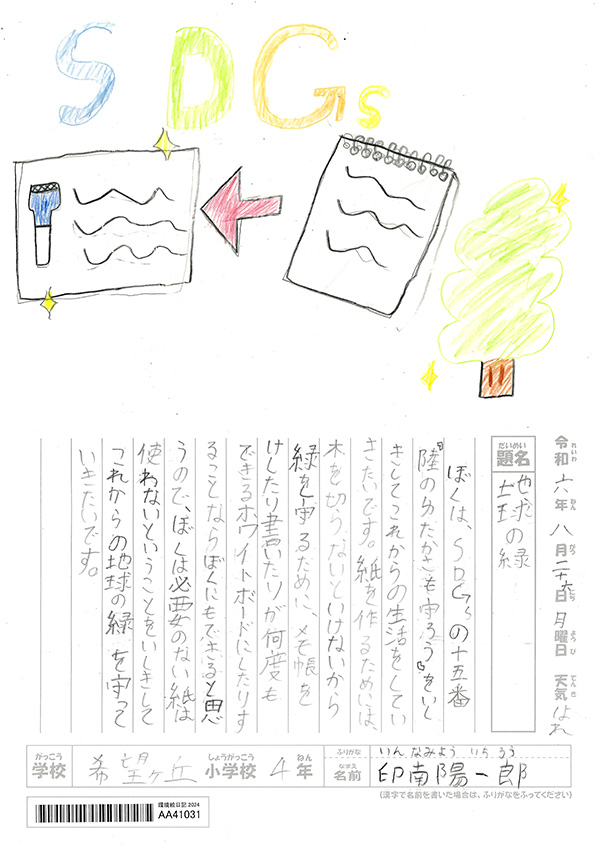 SDGs
令和六年八月二十六日月曜日 天気はれ
れいわ ねん がつ にち ようび てんき
だいめい
題名 地球の緑
ぼくは、SDGsの十五番
『陸のゆたかさも守ろう』をいし
きしてこれからの生活をしてい
きたいです。紙を作るためには、
木を切らないといけないから
緑を守るために、メモ帳を
けしたり書いたりが何度も
できるホワイトボードにしたりす
ることならぼくにもできると思
うので、ぼくは必要のない紙は
使わないということをいしきして
これからの地球の緑を守って
いきたいです。
がっこう しょうがっこう ねん
学校 希望ヶ丘 小学校 4年
ふりがな いんなみよういちろう
なまえ
名前 印南陽一郎
(漢字で名前を書いた場合は、ふりがなをふってください)
環境絵日記2024
AA41031